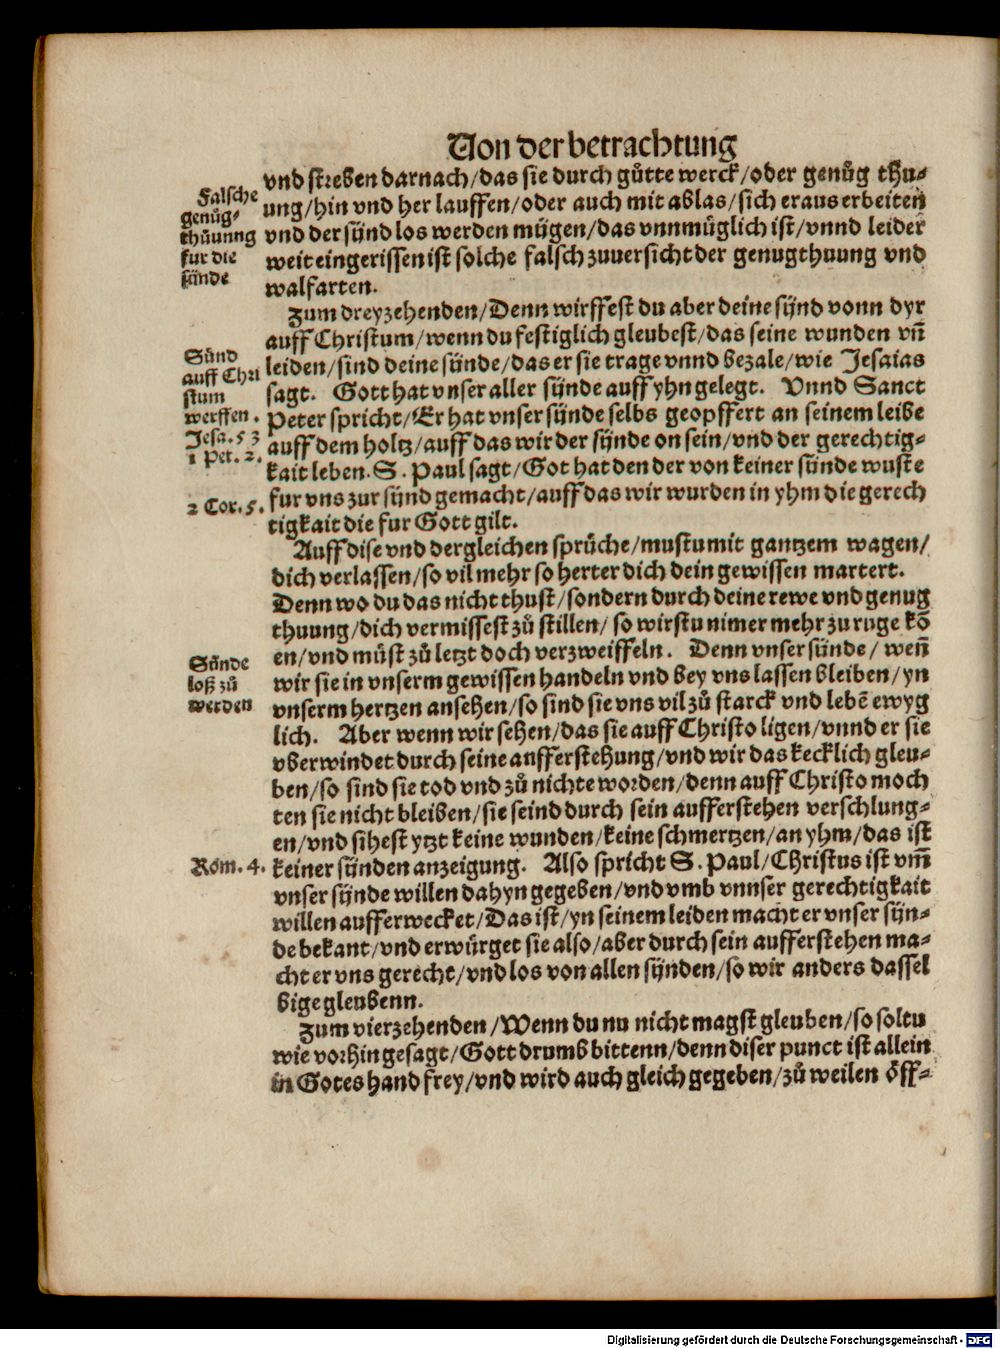 Von der betrachtung
vnd streben darnach/das sie durch gůtte werck/oder genůg thu-
ung/hin vnd her lauffen/oder auch mit ablas/sich eraus erbeiten
vnd der sünd los werden mügen/das vnnmüglich ist/vnnd leider
weit eingerissen ist solche falsch zuuersicht der genugthuung vnd
walfarten.
Falsche
genüg-
thüunng
fur die
sünde
Zum dreyzehenden/Denn wirffest du aber deine sünd vonn dyr
auff Christum/wenn du festiglich gleubest/das seine wunden vn̄
leiden/sind deine sünde/das er sie trage vnnd bezale/wie Jesaias
sagt. Gott hat vnser aller sünde auff yhn gelegt. Vnnd Sanct
Peter spricht/Er hat vnser sünde selbs geopffert an seinem leibe
auff dem holtz/auff das wir der sünde on sein/vnd der gerechtig-
kait leben. S. Paul sagt/Got hat den der von keiner sünde wuste
fur vns zur sünd gemacht/auff das wir wurden in yhm die gerech
tigkait die fur Gott gilt.
Sünd
auff Chri
stum
werffen.
Jesa. 53
1 Pet. 2.
2 Cor. 5.
Auff dise vnd dergleichen sprüche/mustu mit gantzem wagen/
dich verlassen/so vil mehr so herter dich dein gewissen martert.
Denn wo du das nicht thust/sondern durch deine rewe vnd genug
thuung/dich vermissest zů stillen/ so wirstu nimer mehr zu ruge kō
en/vnd můst zů letzt doch verzweiffeln. Denn vnser sünde/ wen̄
wir sie in vnserm gewissen handeln vnd bey vns lassen bleiben/yn
vnserm hertzen ansehen/so sind sie vns vil zů starck vnd lebē ewyg
lich. Aber wenn wir sehen/das sie auff Christo ligen/vnnd er sie
vberwindet durch seine aufferstehung/vnd wir das kecklich gleu-
ben/so sind sie tod vnd zů nichte worden/denn auff Christo moch
ten sie nicht bleiben/sie seind durch sein aufferstehen verschlung-
en/vnd sihest ytzt keine wunden/keine schmertzen/an yhm/das ist
keiner sünden anzeigung. Also spricht S. Paul/Christus ist vm̄
vnser sünde willen dahyn gegeben/vnd vmb vnnser gerechtigkait
willen aufferwecket/Das ist/yn seinem leiden macht er vnser sün-
de bekant/vnd erwürget sie also/aber durch sein aufferstehen ma-
cht er vns gerecht/vnd los von allen sünden/so wir anders dassel
bige gleubenn.
Sünde
loß zů
werden
Röm. 4.
Zum vierzehenden/Wenn du nu nicht magst gleuben/so soltu
wie vorhin gesagt/Gott drumb bittenn/denn diser punct ist allein
in Gotes hand frey/vnd wird auch gleich gegeben/zů weilen öff-
Digitalisierung gefördert durch die Deutsche Forschungsgemeinschaft - DFG